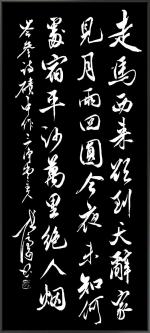 走馬西来欲到天辭家
見月兩回圓今夜未知何
處宿平沙萬里絶人烟
岑參詩磧中作